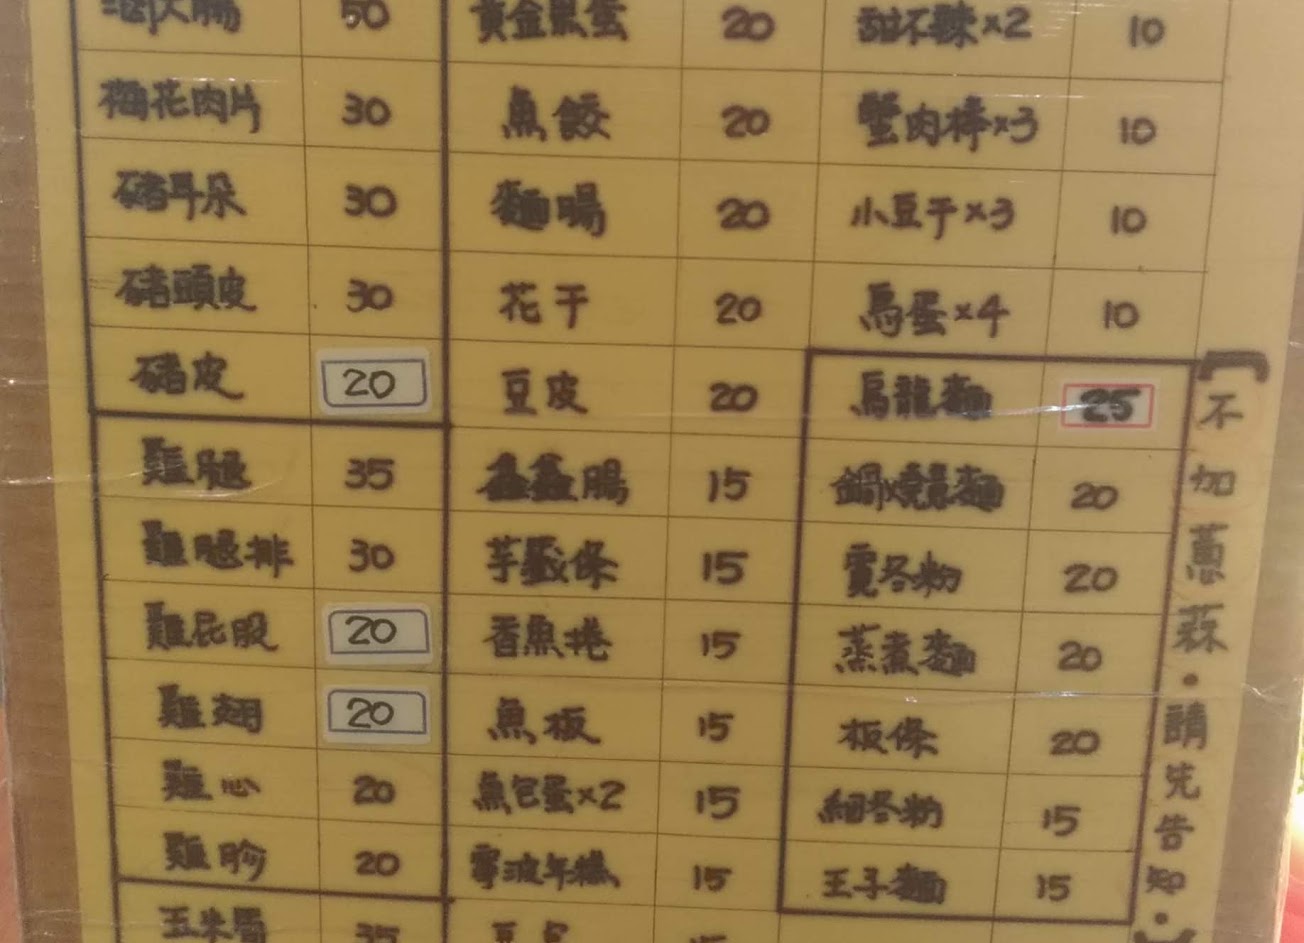 大腸 50
梅花肉片 30
豬耳朵 30
豬頭皮 30
豬皮 20
雞腿 35
雞腿排 30
雞屁股 20
雞翅 20
雞心 20
雞胗 20
玉米筍 35
黃金魚蛋 20
魚餃 20
麵腸 20
花干 20
豆皮 20
鑫鑫腸 15
芋籤條 15
香魚捲 15
魚板 15
魚包蛋×2 15
寧波年糕 15
甜不辣×2 10
蟹肉棒×3 10
小豆干×3 10
鳥蛋×4 10
烏龍麵 25
鍋燒意麵 20
寬冬粉 20
蒸煮麵 20
板條 20
細冬粉 15
王子麵 15
【不加蔥蒜・請先告知・】